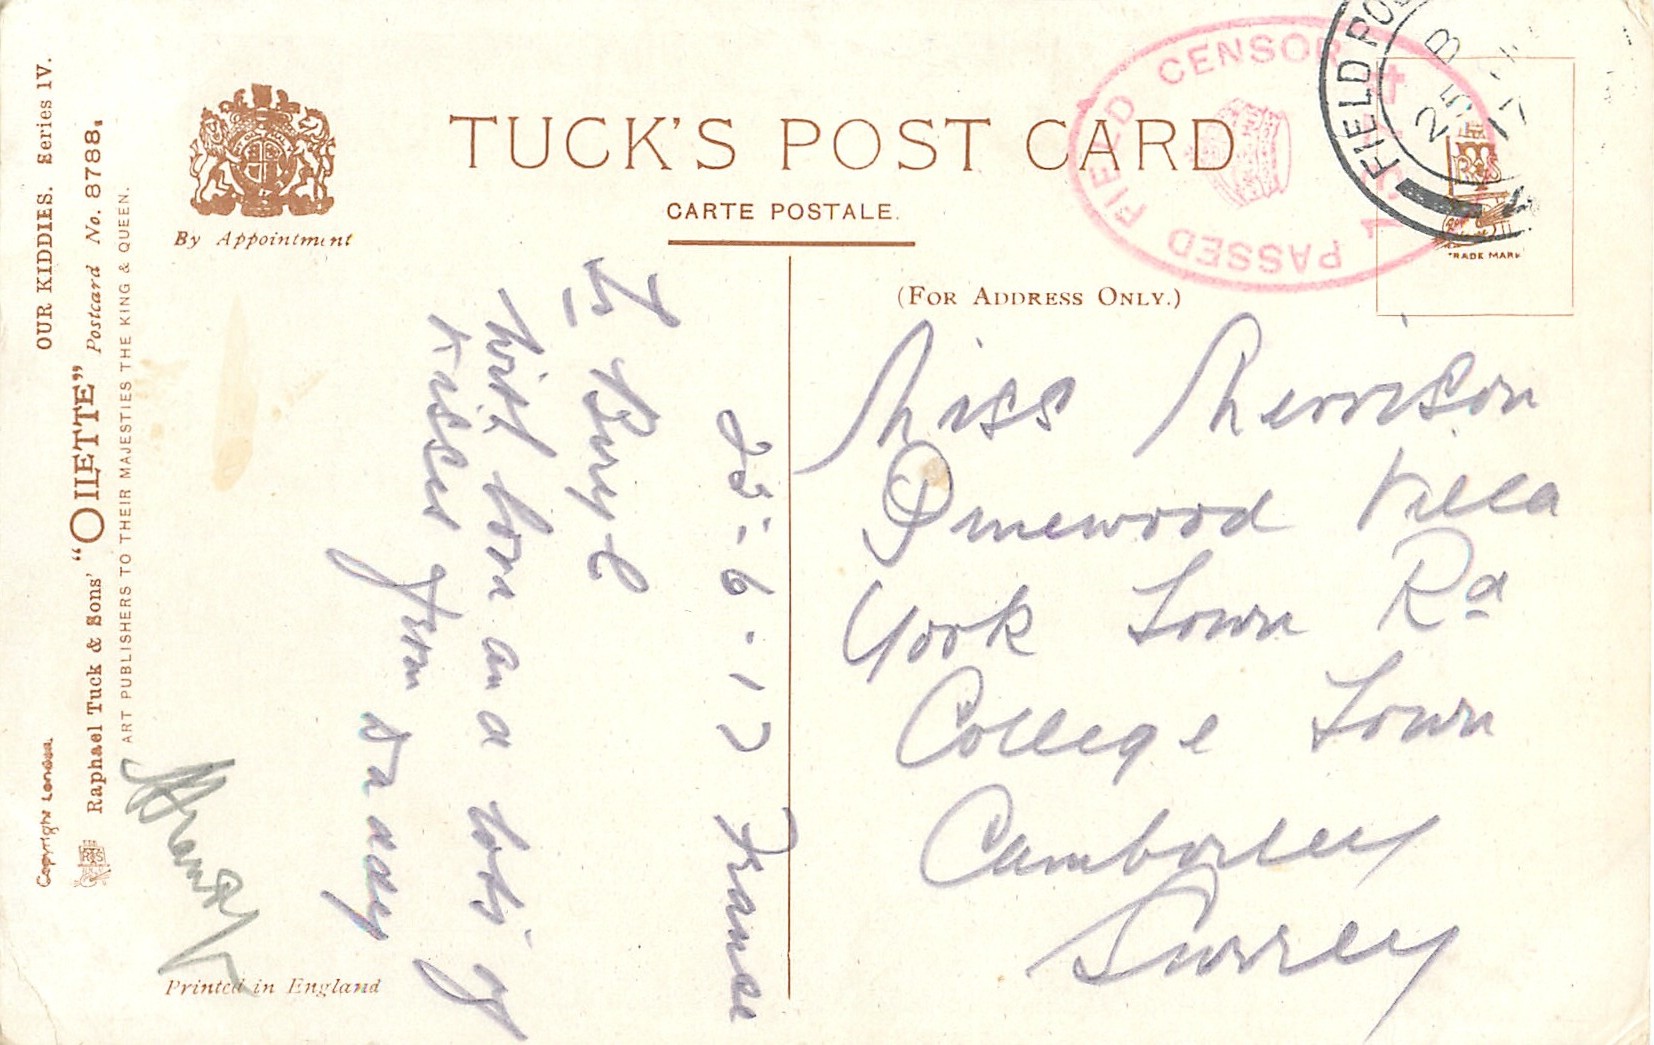 TUCK'S POST CARD
CARTE POSTALE.
(FOR ADDRESS ONLY.)
By Appointment
OUR KIDDIES. Series IV.
Raphael Tuck & Sons' "OILETTE" Postcard No. 8788.
ART PUBLISHERS TO THEIR MAJESTIES THE KING & QUEEN.
Copyright London.
Printed in England
PASSED FIELD CENSOR
FIELD PO
B
25
17
TRADE MARK
25-6-17 France
To Beryl
With love and lots of
kisses from
Miss Merrison
Pinewood Villa
York Town Rd
College Town
Camberley
Surrey